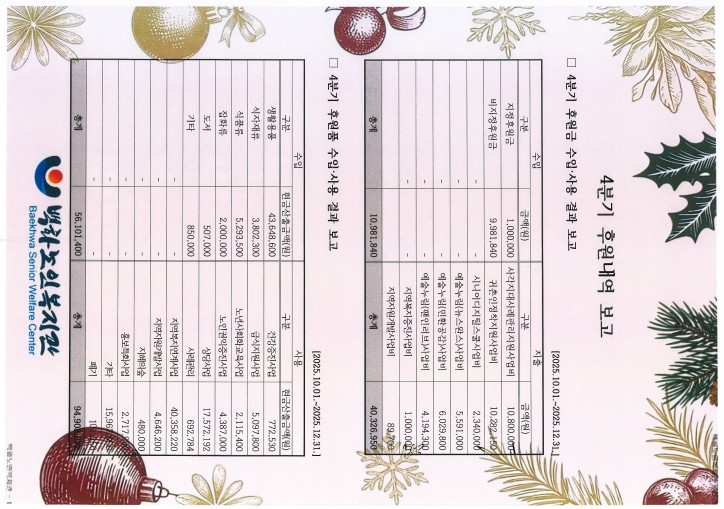 4분기 후원내역 보고
□ 4분기 후원금 수입·사용 결과 보고
[2025.10.01.~2025.12.31.]
수입 지출
구분 금액(원) 구분 금액(원)
지정후원금 1,000,000 사각지대사례관리지원사업비 10,800,000
비지정후원금 9,981,840 귀촌인정착지원사업비
- - 시니어디지털스쿨사업비 2,340,000
- - 예술누림(뉴스완스)사업비 5,591,000
- - 예술누림(민한공감)사업비 6,029,800
- - 예술누림(맨인러브)사업비 4,194,300
- - 지역복지증진사업비 1,000,000
- - 지역자원개발사업비
총계 10,981,840 총계 40,326,950
□ 4분기 후원품 수입·사용 결과 보고
[2025.10.01.~2025.12.31.]
수입 사용
구분 현금산출금액(원) 구분 현금산출금액(원)
생활용품 43,648,600 건강증진사업 772,530
식자재류 3,802,300 급식지원사업 5,097,800
식품류 5,293,500 노년사회화교육사업 2,115,400
잡화류 2,000,000 노인권익증진사업 4,387,000
도서 507,000 상담사업 17,572,192
기타 850,000 사례관리 692,784
- - 지역복지연계사업 40,358,220
- - 지역자원개발사업 4,646,200
- - 치매마을 480,000
- - 홍보특화사업
- - 기타
- - 폐기
총계 56,101,400 총계
백화노인복지관
Baekhwa Senior Welfare Center